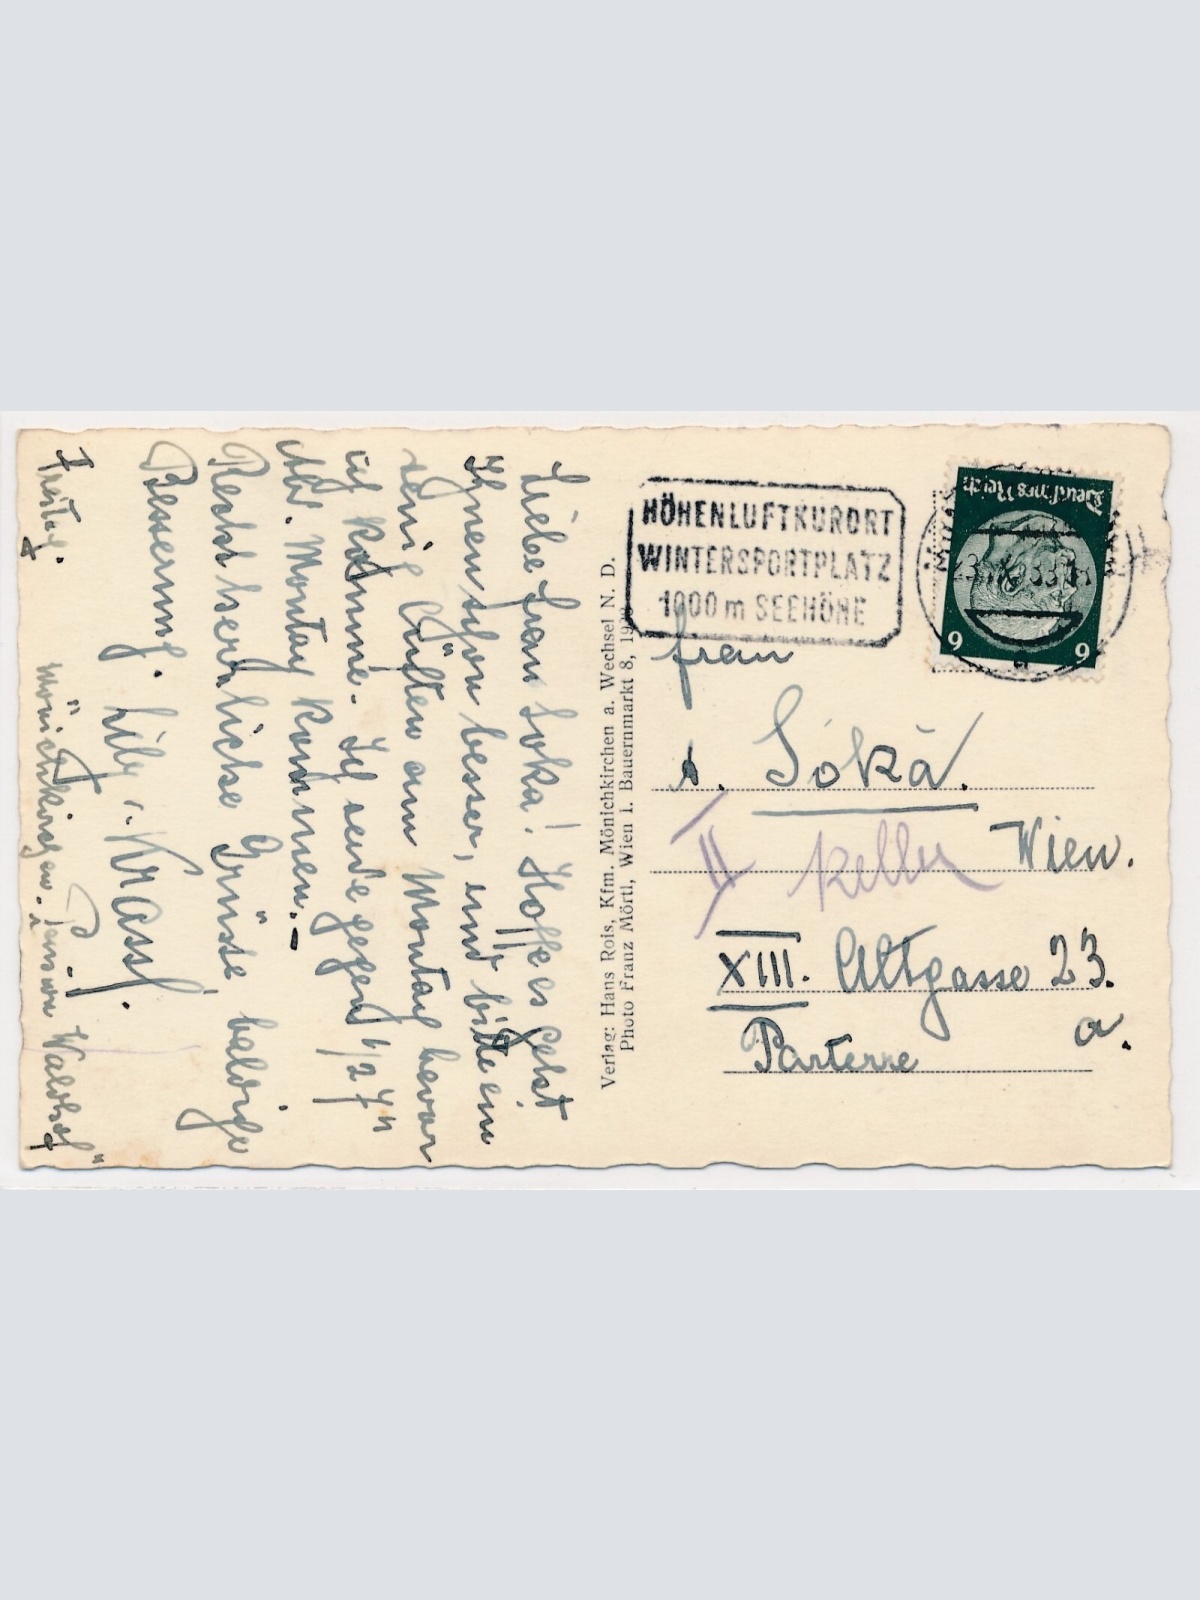 Liebe Frau Soka! Hoffe es gehst
Ihnen schon besser, und bitte ein
wenig lüften am Montag bevor
ich komme. Ich werde gegen 1/2 7h
Abd. Montag kommen.–
Recht herzliche Grüsse, baldige
Besserung. Lily v. Krassl.
Freitag.
Mönichkirchen. Pension "Waldhof"
Verlag: Hans Rois, Kfm. Mönichkirchen a. Wechsel N. D.
Photo Franz Mörtl, Wien I. Bauernmarkt 8,
HÖHENLUFTKURORT
WINTERSPORTPLATZ
1000 m SEEHÖHE
Deutsches Reich
9 9
Frau
S. Soka.
II Keller
Wien.
XIII. Altgasse 23.
a.
Parterre